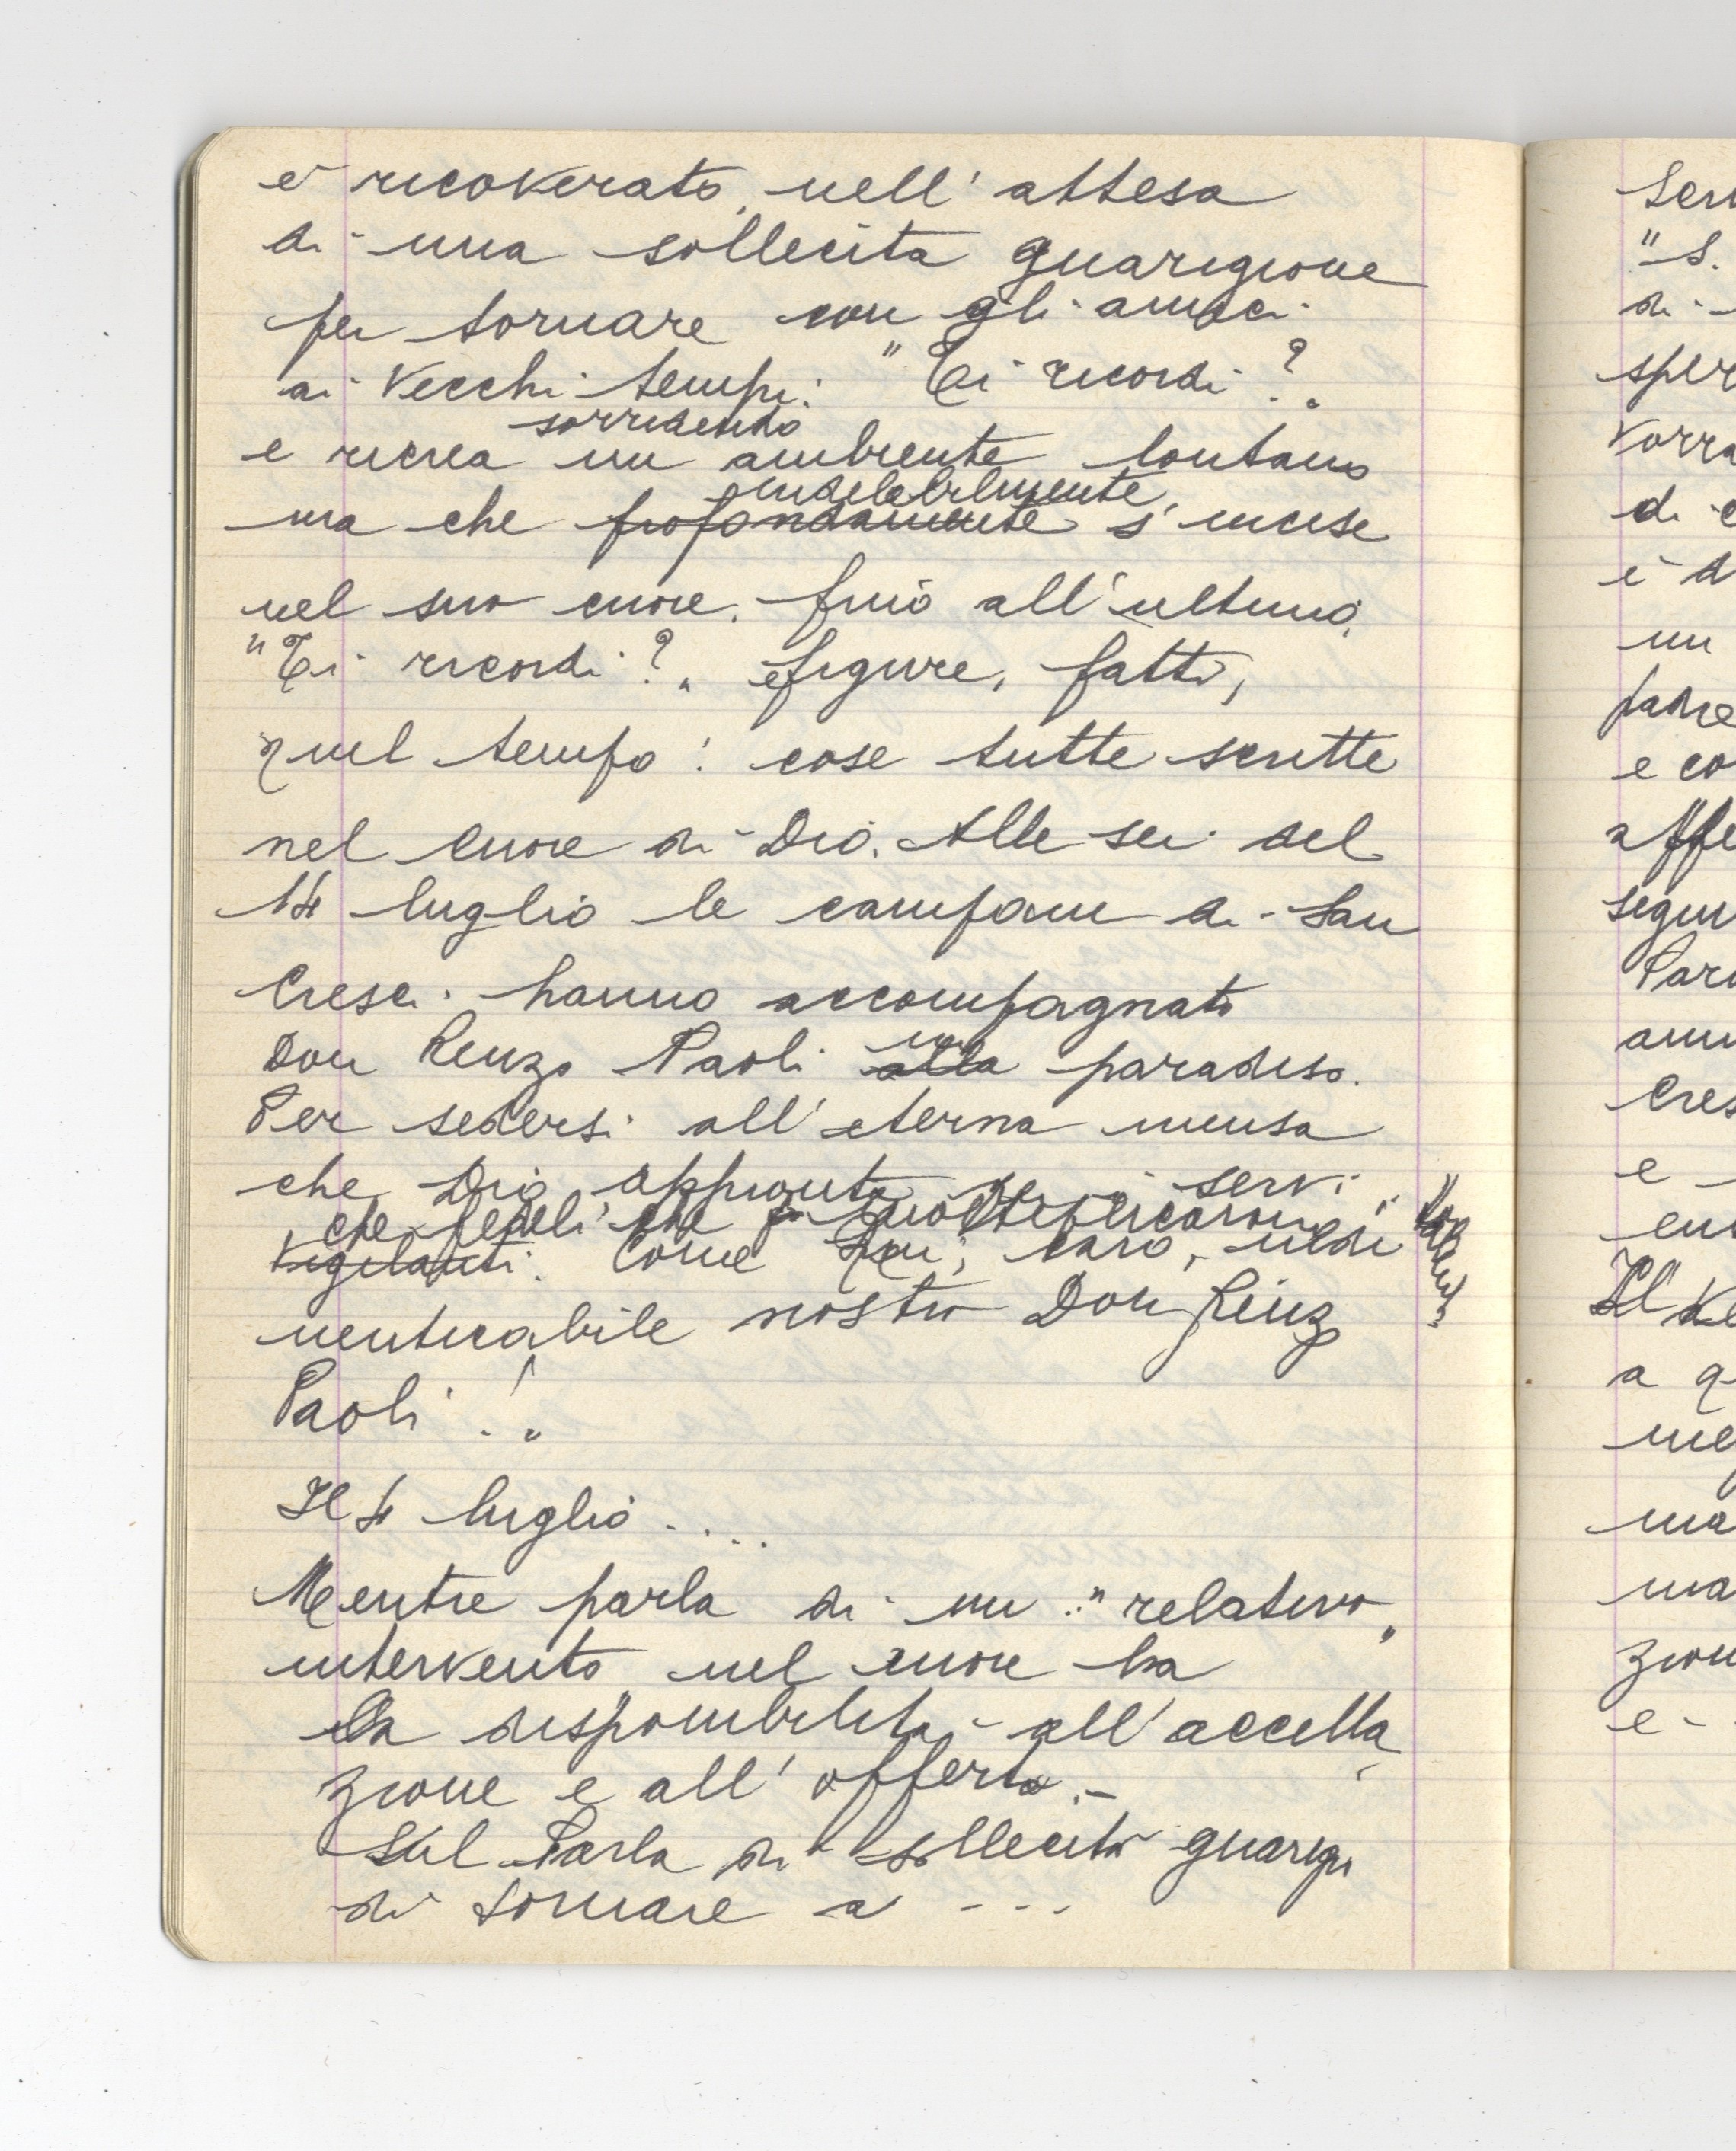 è ricoverato, nell'attesa
di una sollecita guarigione
per tornare con gli amici
ai vecchi tempi. "Ti ricordi?"
sorridendo
e ricrea un ambiente lontano
indelebilmente
ma che profondamente s'incise
nel suo cuore. fino all'ultimo.
"Ti ricordi?" e figure, fatti,
quel tempo: cose tutte scritte
nel cuore di Dio. Alle sei del
14 luglio le campane di San
Cresci hanno accompagnato
Don Renzo Paoli alla paradiso.
Per sedersi all'eterna mensa
che Dio appronta per i servi
che fedeli che
vigilanti. Come Lei, caro, indi
menticabile nostro Don Renzo
Paoli!"
Il 4 luglio ....
Mentre parla di un "relativo"
intervento nel cuore ha
la disponibilità all'accetta
zione e all'offerta. -
Parla di sollecita guarigi
di tornare a ---
Serv
"S.
di
sper
vorra
di c
è d
un
padre
e co
affe
segu
Paro
ann
Cres
e
Il ve
a q
me
ma
ma
zion
e -